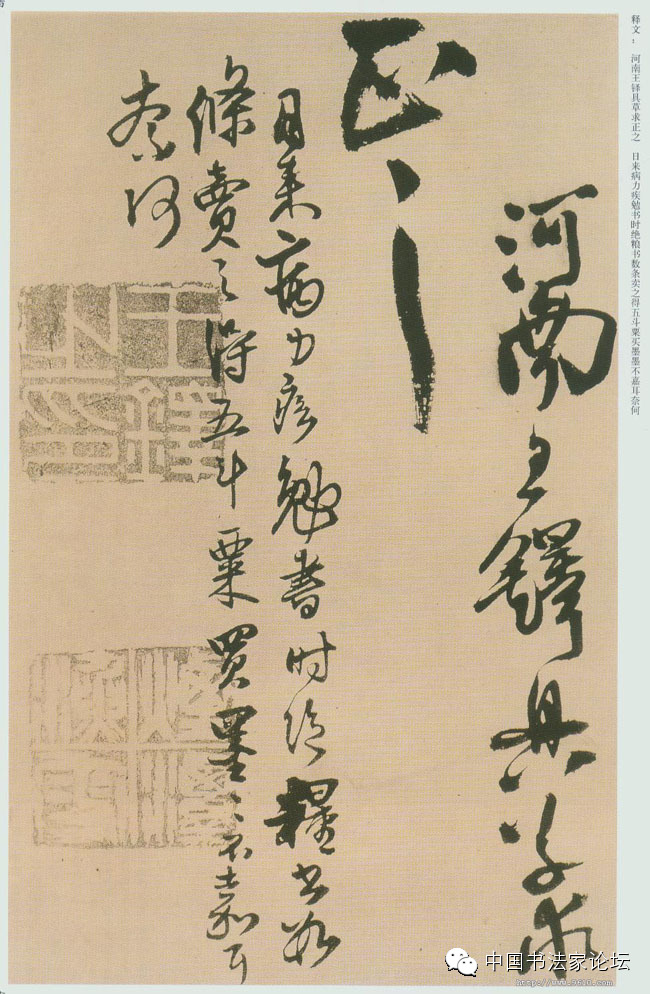 释文： 河南王铎具草求正之 日来病力疾勉书时绝粮书数条卖之得五斗粟买墨墨不嘉耳奈何
河南王鐸具草求
正之
日來病力疾勉書时绝糧书数
條賣之得五斗粟買墨〻不嘉耳
奈何
王鐸之印
中国书法家论坛
http://www.9610.com